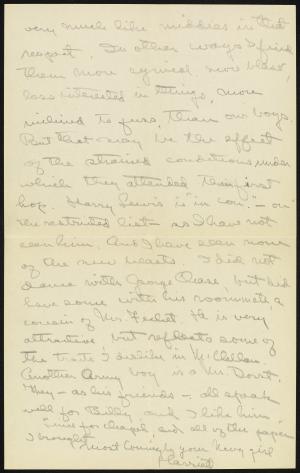 very much like middies in that
respect. In other ways I find
them more cynical, more blasé,
less interested in things, more
inclined to fuss, than our boys.
But that may be the effect
of the strained conditions under
which they attended their first
hop. Harry Lewis is in "con." - on
the restricted list - so I have not
seen him. And I have seen none
of the new yearts. I did not
dance with George Chase, but did
have some with his roommate, a
cousin of Mr. Fechet. He is very
attractive, but reflects some of
the traits I dislike in McClellan.
Another Army boy is a Mr. Dorst.
They - as his friends - all speak
well for Billy, and I like him.
Time for chapel and all of the paper
I brought.
Most lovingly your Navy girl
Harriett